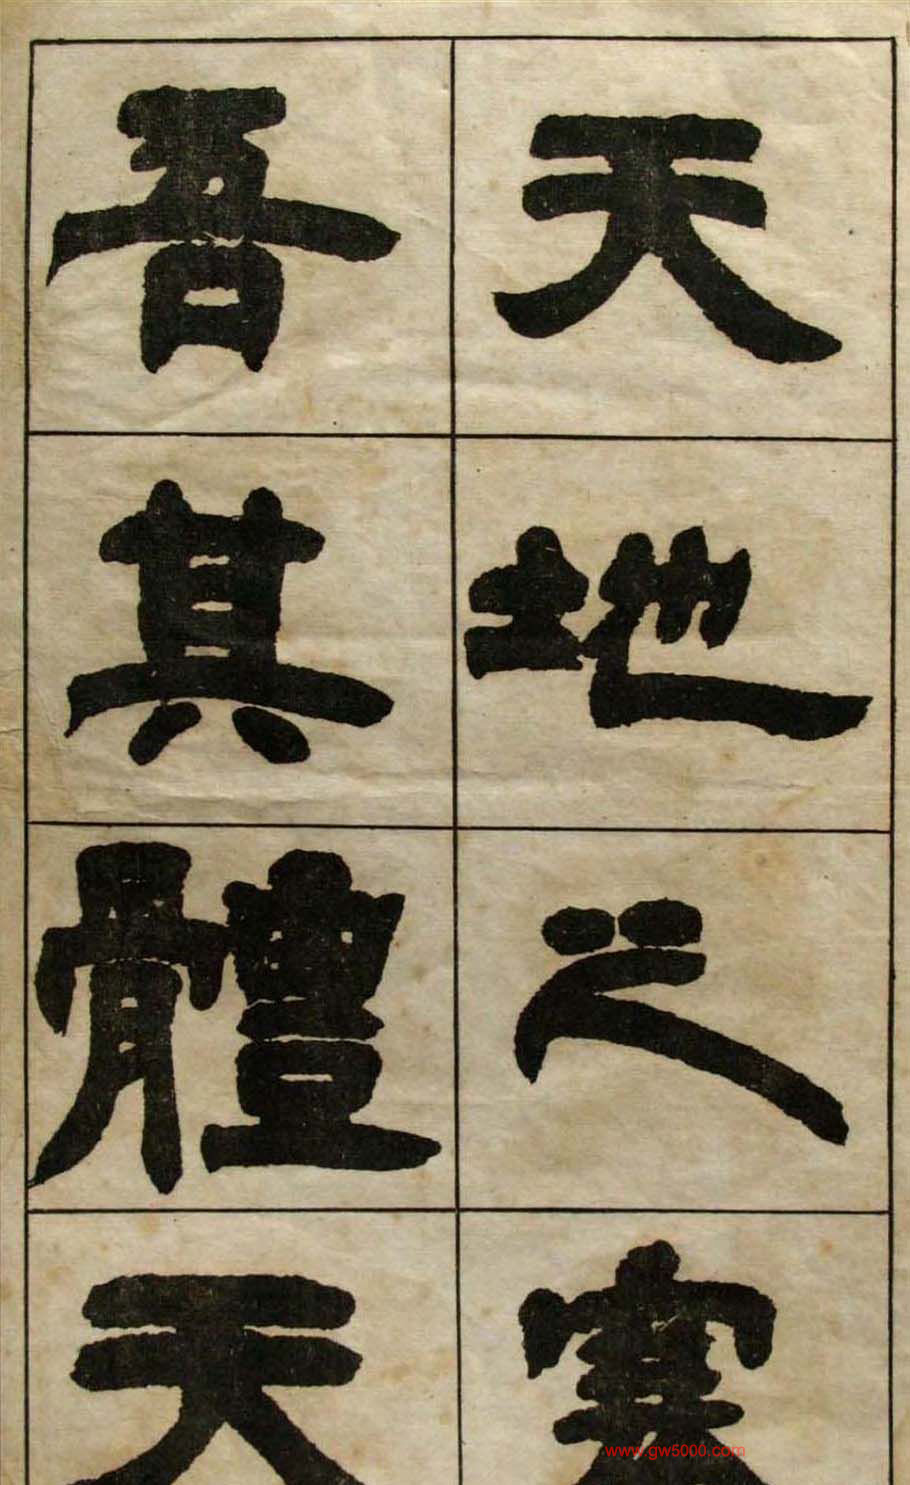 天地之塞
吾其體天
www.gw5000.com